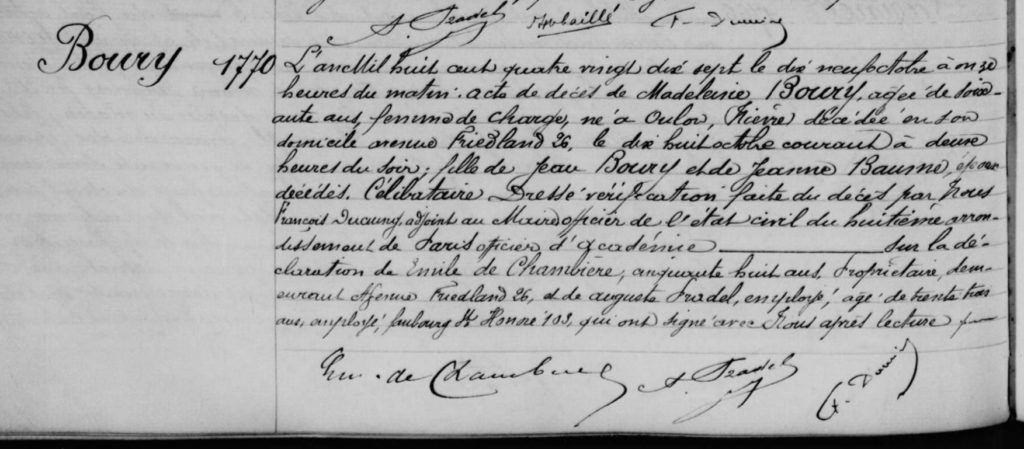 A. Pradel
Boury 1770
L'an Mil huit cent quatre vingt dix sept le dix neuf octobre à onze
heures du matin. acte de décès de Madeleine Boury, agée de soix-
ante ans, femme de charge, né à Oulon, Nièvre, décédée en son
domicile avenue Friedland 26, le dix huit octobre courant à deux
heures du soir; fille de Jean Boury et de Jeanne Baume, époux
décédés. Célibataire Dressé vérification faite du décès par Nous
François Ducuing, adjoint au Maire officier de l'état civil du huitième arron-
dissement de Paris officier d'Académie sur la dé-
claration de Emile de Chambière, cinquante huit ans, Propriétaire, dem-
eurant Avenue Friedland 26, et de auguste Pradel, employé, agé de trente trois
ans, employé, faubourg St Honoré 103, qui ont signé avec Nous après lecture
Em. de Chambière A. Pradel